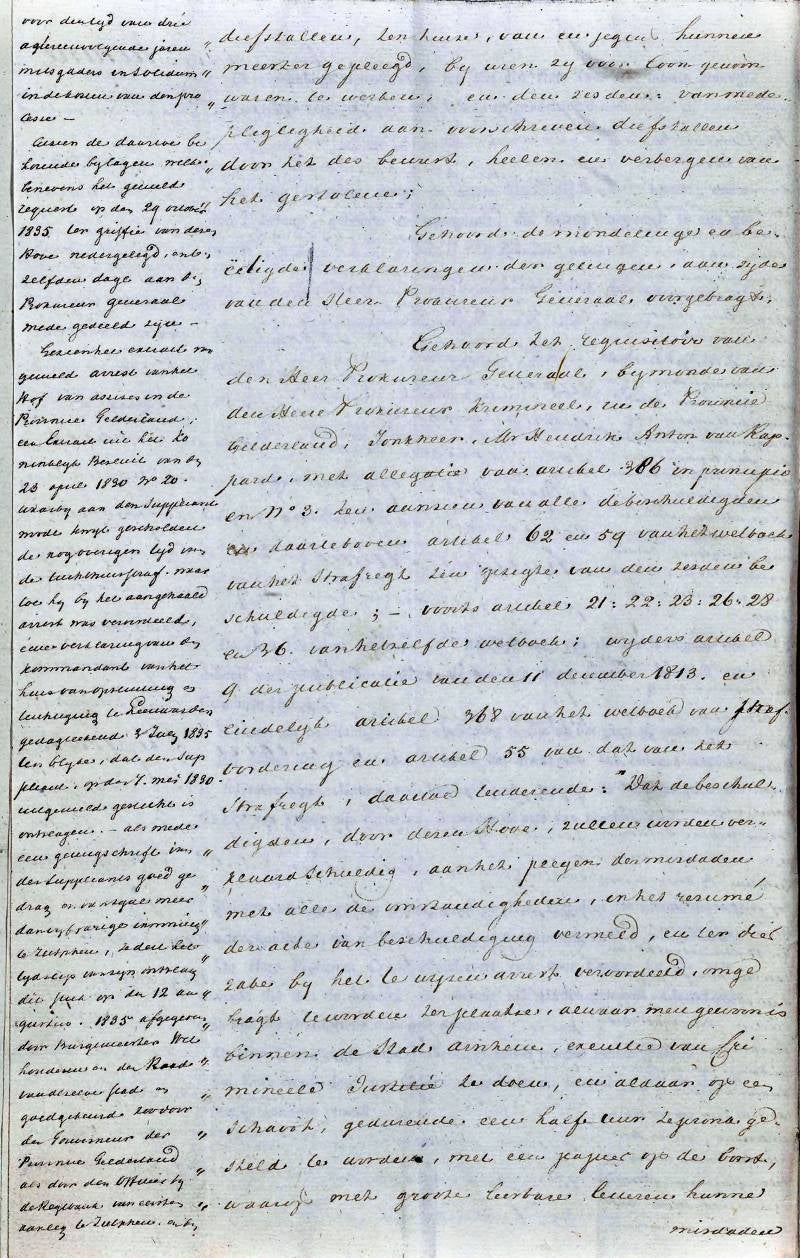 voor den tyd van drie
agtereenvolgende jaren
mitsgaders in solidum
in de kosten van den pro
cesse —
Gezien de daartoe be
hoorende bylagen welke
benevens het gemeld
request op den 29 october
1835 ter griffie van deze
Hove nedergelegd, en te
zelfden dage aan den
Prokureur generaal
mede gedeeld zyn —
Gezien het extract
gemeld arrest van het
Hof van assises in de
Provincie Gelderland;
een Extract uit het Ko
ninklyk Besluit van den
23 april 1830 No 20.
waarby aan den Suppliant
wordt kwyt gescholden
de nog overigen tyd van
de tuchthuisstraf waar
toe hy by het aangehaald
arrest was veroordeeld,
eene verklaring van den
Kommandant van het
huis van opsluiting en
tuchtiging te Leeuwarden
gedagteekend 3 July 1835
ten blyke, dat de Sup
pliant, op den 7. mei 1830
uit gemeld gesticht is
ontslagen. — als mede
een getuigschrift van
des Suppliants goed ge
drag en van zyne meer
dan vyfjarige inwoning
te Zutphen, sedert het
tydstip van zyn ontslag
die stuk op den 12 au
gustus 1835 afgegeven
door Burgemeester Wet
houderen en den Raad
van dezelve stad en
goedgekeurd zoo door
den Gouverneur der
Provincie Gelderland
als door den Officier by
de Regtbank van eersten
aanleg te Zutphen. en by
diefstallen, ten huize, van en jegens hunnen
meester gepleegd, by wien zy voor loon gewoon
waren te werken; en den zesden: van mede-
pligtigheid aan voorschreven diefstallen
door het des bewust, heelen en verbergen van
het gestolene;
Gehoord de mondelinge en be-
ëedigde verklaringen der getuigen, aan zyde
van den Heer Procureur Generaal voorgebragt;
Gehoord het requisitoir van
den Heer Prokureur Generaal, by monde van
den Heere Prokureur Krimineel, in de Provincie
Gelderland, Jonkheer, Mr Hendrik Anton van Rap-
pard, met allegatie van artikel 386 in principio
en No 3. ten aanzien van alle de beschuldigden
en daarteboven artikel 62 en 59 van het wetboek
van het Strafregt ten opzigte van den zesden be
schuldigde; — voorts artikel 21: 22: 23: 26: 28
en 36. van hetzelfde wetboek; wyders artikel
9 der publicatie van den 11 december 1813. en
eindelyk artikel 368 van het wetboek van Straf-
vordering en artikel 55 van dat van het
Strafregt, daartoe tenderende: "Dat de beschul
digden, door dezen Hove, zullen worden ver-
klaard schuldig, aan het plegen der misdaden
met alle de omstandigheden, in het resumé
der acte van beschuldiging vermeld, en ter dier
zake by het te wyzen arrest veroordeeld, om ge
bragt te worden ter plaatse, alwaar men gewoon is
binnen de Stad Arnhem, executie van Cri
mineele Justitie te doen, en aldaar op een
schavot, gedurende een half uur te pronk ge-
steld te worden, met een papier op de borst,
waarop met groote leesbare letteren hunne
misdaden